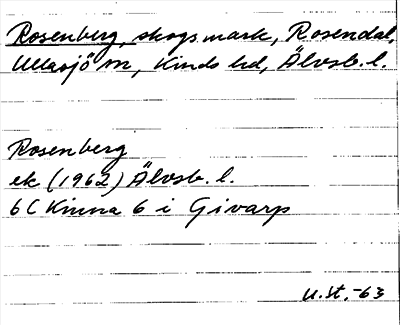 Rosenberg, skogsmark, Rosendal,
Ullasjö sn, Kinds hd, Älvsb. l.
Rosenberg
ek (1962) Älvsb. l.
6 C Kinna 6 i Givarp
U.St.-63